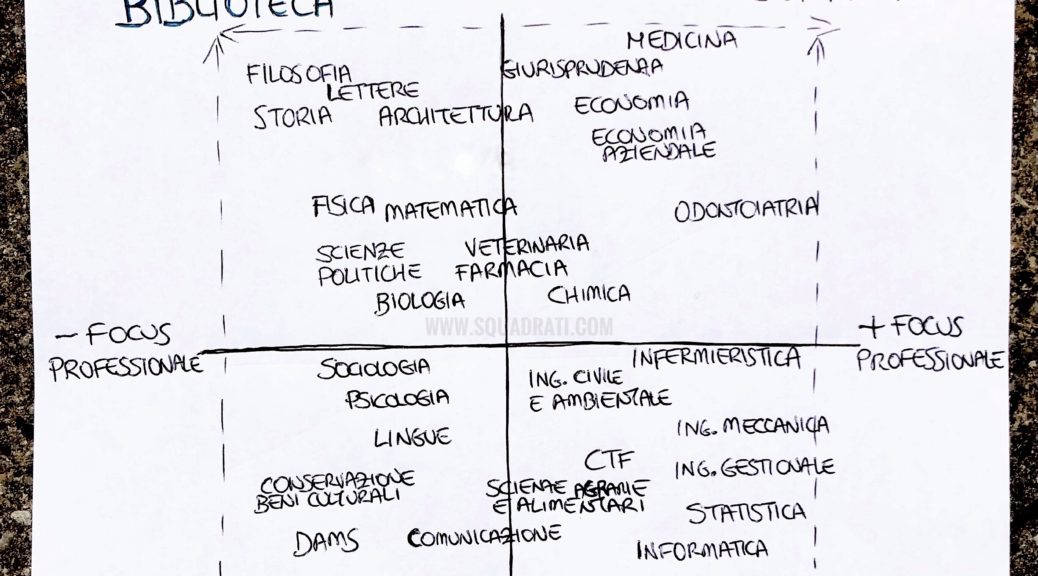 BIBLIOTECA
MEDICINA
FILOSOFIA
GIURISPRUDENZA
LETTERE
ECONOMIA
STORIA
ARCHITETTURA
ECONOMIA
AZIENDALE
FISICA
MATEMATICA
ODONTOIATRIA
SCIENZE
POLITICHE
VETERINARIA
FARMACIA
BIOLOGIA
CHIMICA
WWW.SQUADRATI.COM
- FOCUS
PROFESSIONALE
+ FOCUS
PROFESSIONALE
SOCIOLOGIA
INFERMIERISTICA
PSICOLOGIA
ING. CIVILE
E AMBIENTALE
LINGUE
ING. MECCANICA
CTF
ING. GESTIONALE
CONSERVAZIONE
BENI CULTURALI
SCIENZE AGRARIE
E ALIMENTARI
STATISTICA
DAMS
COMUNICAZIONE
INFORMATICA